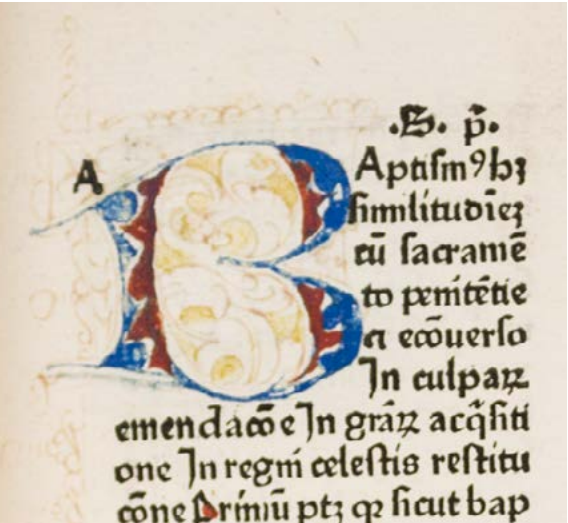 .S. p̃.
A
BAptiſmꝰ hꝫ
ſimilitudīeꝫ
cū ſacramē
to penitētie
et ecōuerſo
In culpaꝝ
emendacōe In grāꝝ acq̄ſiti
one In regni celeſtis reſtitu
cōne Primū ptꝫ qꝛ ſicut bap